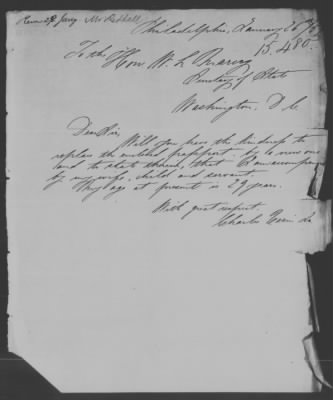 Philadelphia, January 26
15.480.
To the
Hon. W. L. Marcy
Secretary of State
Washington D C
Dear Sir,
Will you have the kindness to
replace the enclosed passport by a new one
and to state therein, that I am accompanied
by my wife, child and servant.
My age at present is 29 years.
With great respect,
Charles